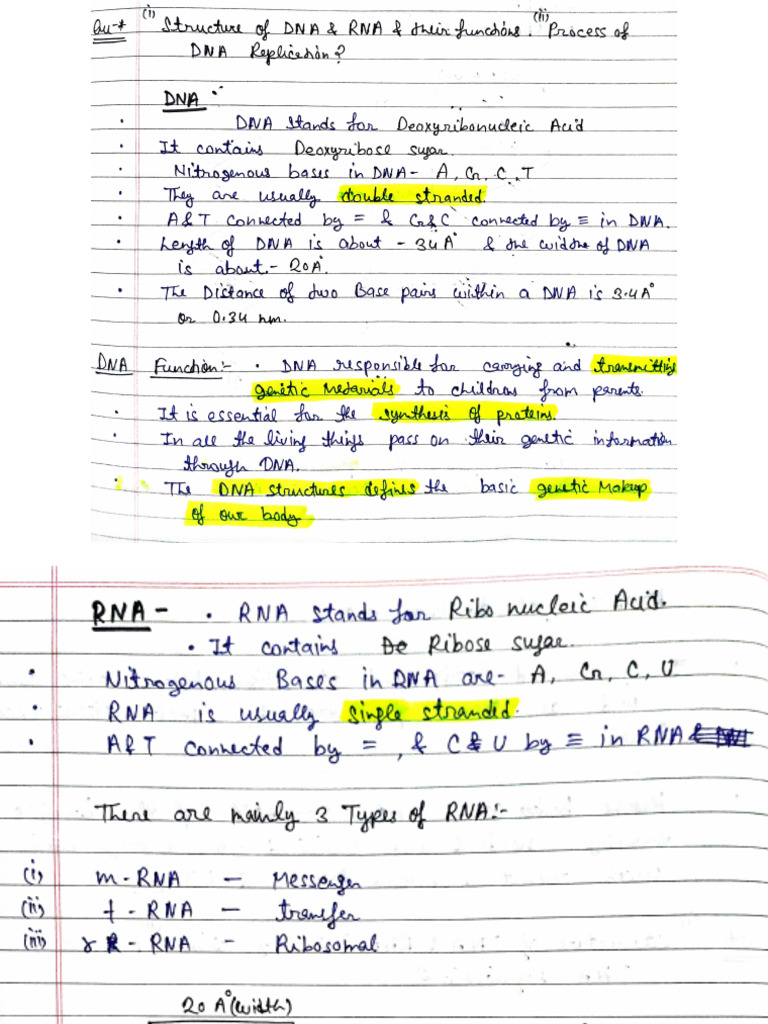 Qu-* (i) Structure of DNA & RNA & their functions. (ii) Process of
DNA Replication?
DNA :-
• DNA stands for Deoxyribonucleic Acid
• It contains Deoxyribose sugar.
• Nitrogenous bases in DNA - A, G, C, T
• They are usually double stranded.
• A&T connected by = & G&C connected by ≡ in DNA.
• Length of DNA is about - 34A° & the width of DNA
is about - 20A°.
• The Distance of two Base pairs within a DNA is 3.4A°
or 0.34 nm.
DNA Function:- • DNA responsible for carrying and transmitting
genetic materials to children from parents.
• It is essential for the synthesis of proteins.
• In all the living things pass on their genetic information
through DNA.
• The DNA structures defines the basic genetic Makeup
of our body
RNA - • RNA stands for Ribo nucleic Acid.
• It contains Ribose sugar.
• Nitrogenous Bases in RNA are - A, G, C, U
• RNA is usually single stranded.
• A&T connected by = , & C & U by ≡ in RNA
There are mainly 3 Types of RNA:-
(i) m-RNA - Messenger
(ii) t-RNA - transfer
(iii) r-RNA - Ribosomal
20 A° (width)